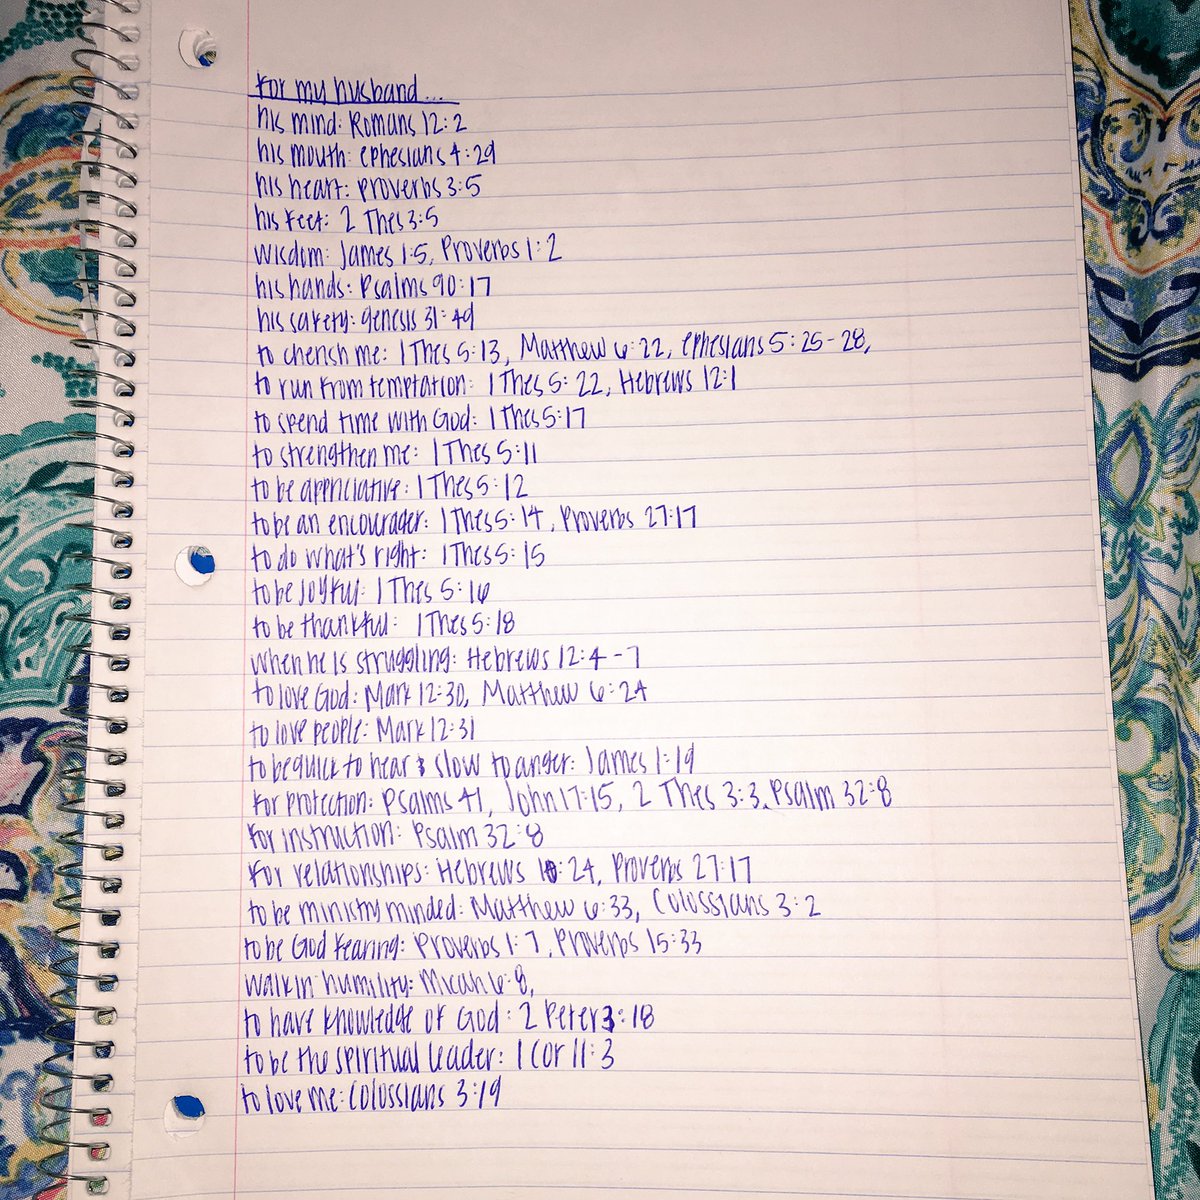 For my husband...
his mind: Romans 12:2
his mouth: ephesians 4:29
his heart: proverbs 3:5
his feet: 2 Thes 3:5
wisdom: James 1:5, Proverbs 1:2
his hands: Psalms 90:17
his safety: genesis 31:49
to cherish me: 1 Thes 5:13, Matthew 6:22, ephesians 5:25-28,
to run from temptation: 1 Thes 5:22, Hebrews 12:1
to spend time with God: 1 Thes 5:17
to strengthen me: 1 Thes 5:11
to be appriciative: 1 Thes 5:12
to be an encourager: 1 Thes 5:14, Proverbs 27:17
to do what's right: 1 Thes 5:15
to be joyful: 1 Thes 5:16
to be thankful: 1 Thes 5:18
when he is struggling: Hebrews 12:4-7
to love God: Mark 12:30, Matthew 6:24
to love people: Mark 12:31
to be quick to hear & slow to anger: James 1:19
For protection: Psalms 41, John 17:15, 2 Thes 3:3, Psalm 32:8
For instruction: Psalm 32:8
For relationships: Hebrews 10:24, Proverbs 27:17
to be ministry minded: Matthew 6:33, Colossians 3:2
to be God fearing: Proverbs 1:7, Proverbs 15:33
walk in humility: Micah 6:8,
to have knowledge of God: 2 Peter 3:18
to be the spiritual leader: 1 Cor 11:3
to love me: Colossians 3:19